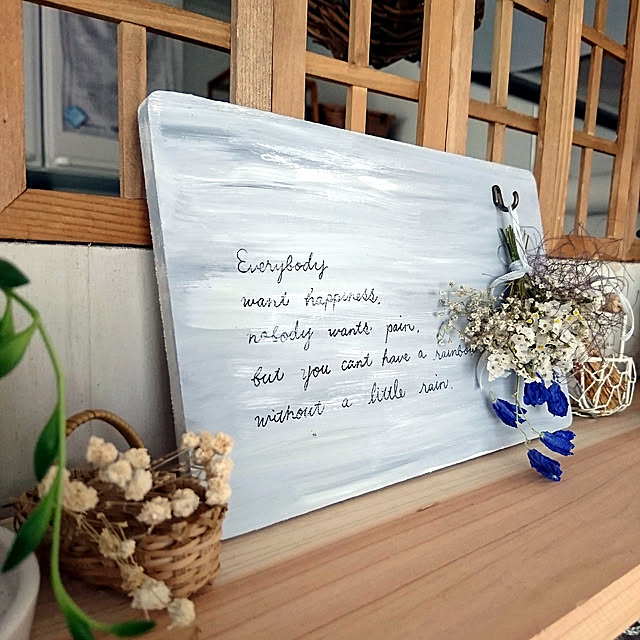 Everybody
want happiness,
nobody wants pain,
but you cant have a rainbow
without a little rain.